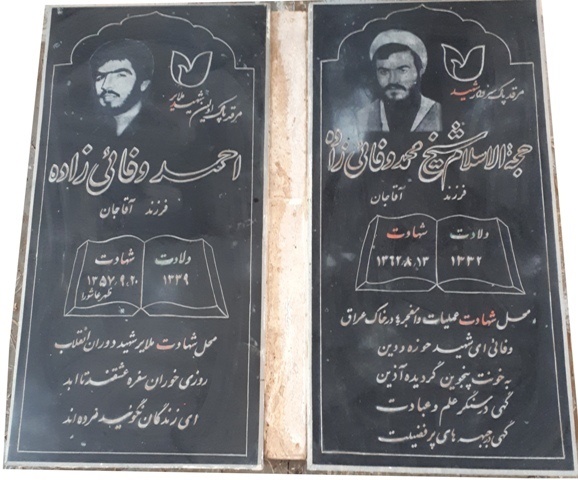 مرقد پاک سردار شهید
حجة الاسلام شیخ محمد وفائی زاده
فرزند آقاجان
ولادت
۱۳۳۲
شهادت
۱۳۶۲،۸،۱۳
محل شهادت عملیات والفجر۴ در خاک عراق
وفائی ای شهید حوزه و دین
به خونت پنجوین گردیده آذین
گهی در سنگر علم و عبادت
گهی در جبهه های پر فضیلت
مرقد پاک اولین شهید ملایر
احمد وفائی زاده
فرزند آقاجان
ولادت
۱۳۳۹
شهادت
۱۳۵۷،۹،۲۰
ظهر عاشورا
محل شهادت ملایر شهید دوران انقلاب
روزی خوران سفره عشقند تا ابد
ای زندگان نگوئید مرده اند